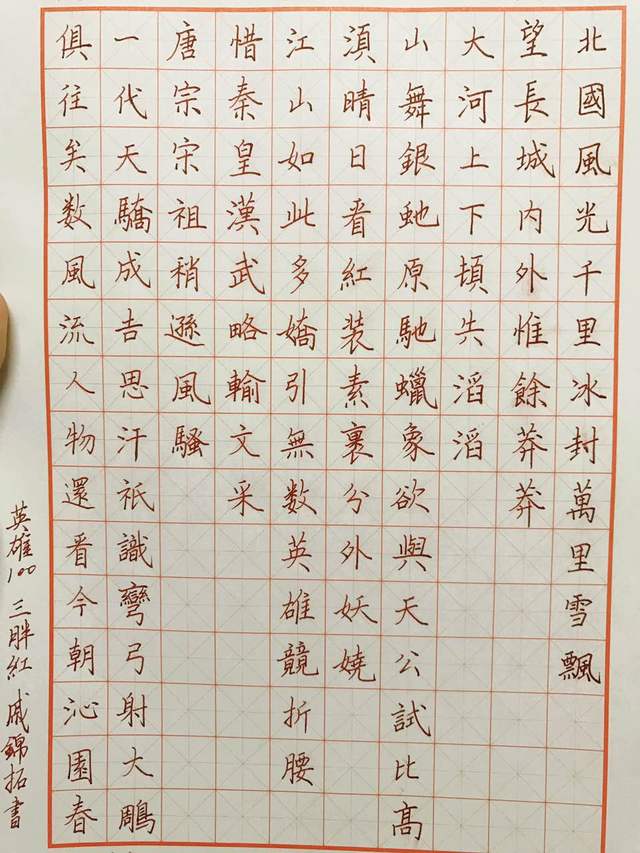 北國風光千里冰封萬里雪飄
望長城內外惟餘莽莽
大河上下頓失滔滔
山舞銀虵原馳蠟象欲與天公試比高
須晴日看紅装素裹分外妖嬈
江山如此多嬌引無数英雄競折腰
惜秦皇漢武略輸文采
唐宗宋祖稍遜風騷
一代天驕成吉思汗祇識彎弓射大鵰
俱往矣数風流人物還看今朝沁園春
英雄100 三胖紅 戚錦拓書